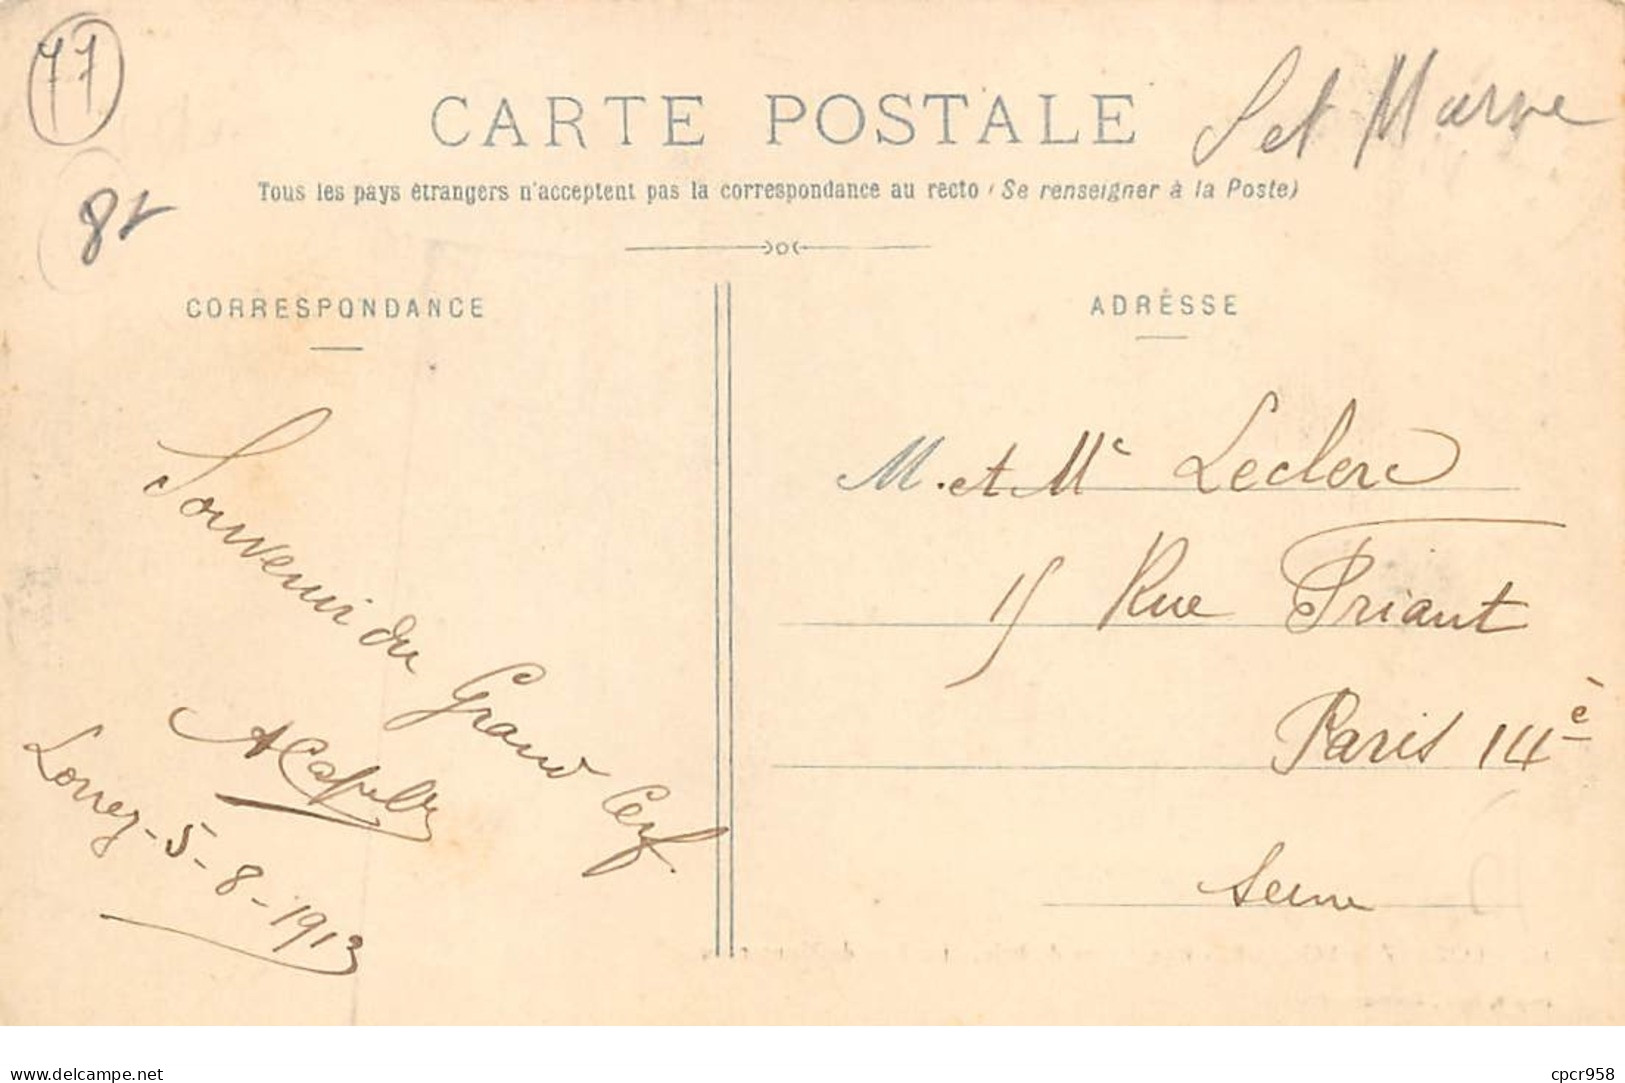 77
8
S et Marne
CARTE POSTALE
Tous les pays étrangers n'acceptent pas la correspondance au recto (Se renseigner à la Poste)
CORRESPONDANCE
ADRESSE
Souvenir du Grand Cerf
Lorrez-5-8-1913
M. et Me Leclerc
15 Rue Friant
Paris 14è
Seine
www.delcampe.net
cpcr958